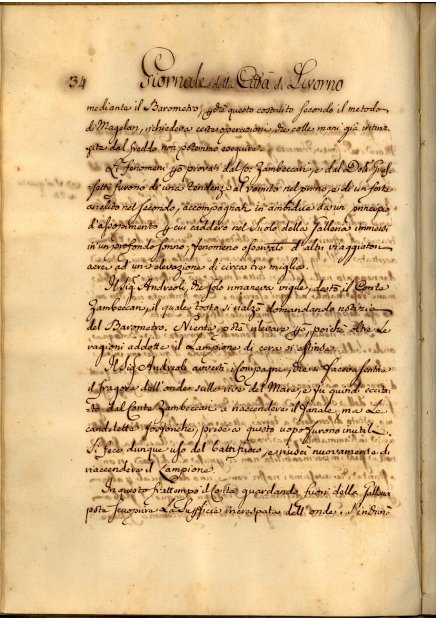 34 Giornale della Città di Livorno
mediante il Barometro, p che questo costruito secondo il metodo
di Magelan, richiedeva certe operazioni che colle mani già intiriz
zite dal freddo non potevano eseguirsi.
I Fenomeni provati dal Co: Zambeccari, e dal Dot.
furono di una tendenza al vomito nel primo, e di un forte
nel secondo, accompagnati in ambidue da un principio
d'assopimento p cui caddero nel suolo della Galleria immersi
in un profondo sonno, fenomeno osservato d'altri viaggiatori
aerei ad un elevazione di circa tre miglia.
Il Sig. Andreoli, che solo rimaneva vigile, destò il Conte
Zambeccari, il quale tosto si rialzò domandando notizia
del Barometro. Niente potè rilevare p, poichè oltre le
ragioni addotte il Lampione di cera si estinse.
Il Sig. Andreoli avvertì i Compagni, che si faceva sentire
il fragore dell'onde sulle rive del Mare, e fu quindi eccita
to dal Conte Zambeccari a riaccendere il fanale, ma le
candelette fosforiche, prese a questo uopo furono inutili.
Si fece dunque uso del battifuoco, e riuscì nuovamente di
riaccendere il Lampione.
In questo frattempo il Conte guardando fuori della Galleria
potè scuoprire la Superficie increspata dell'onde, e